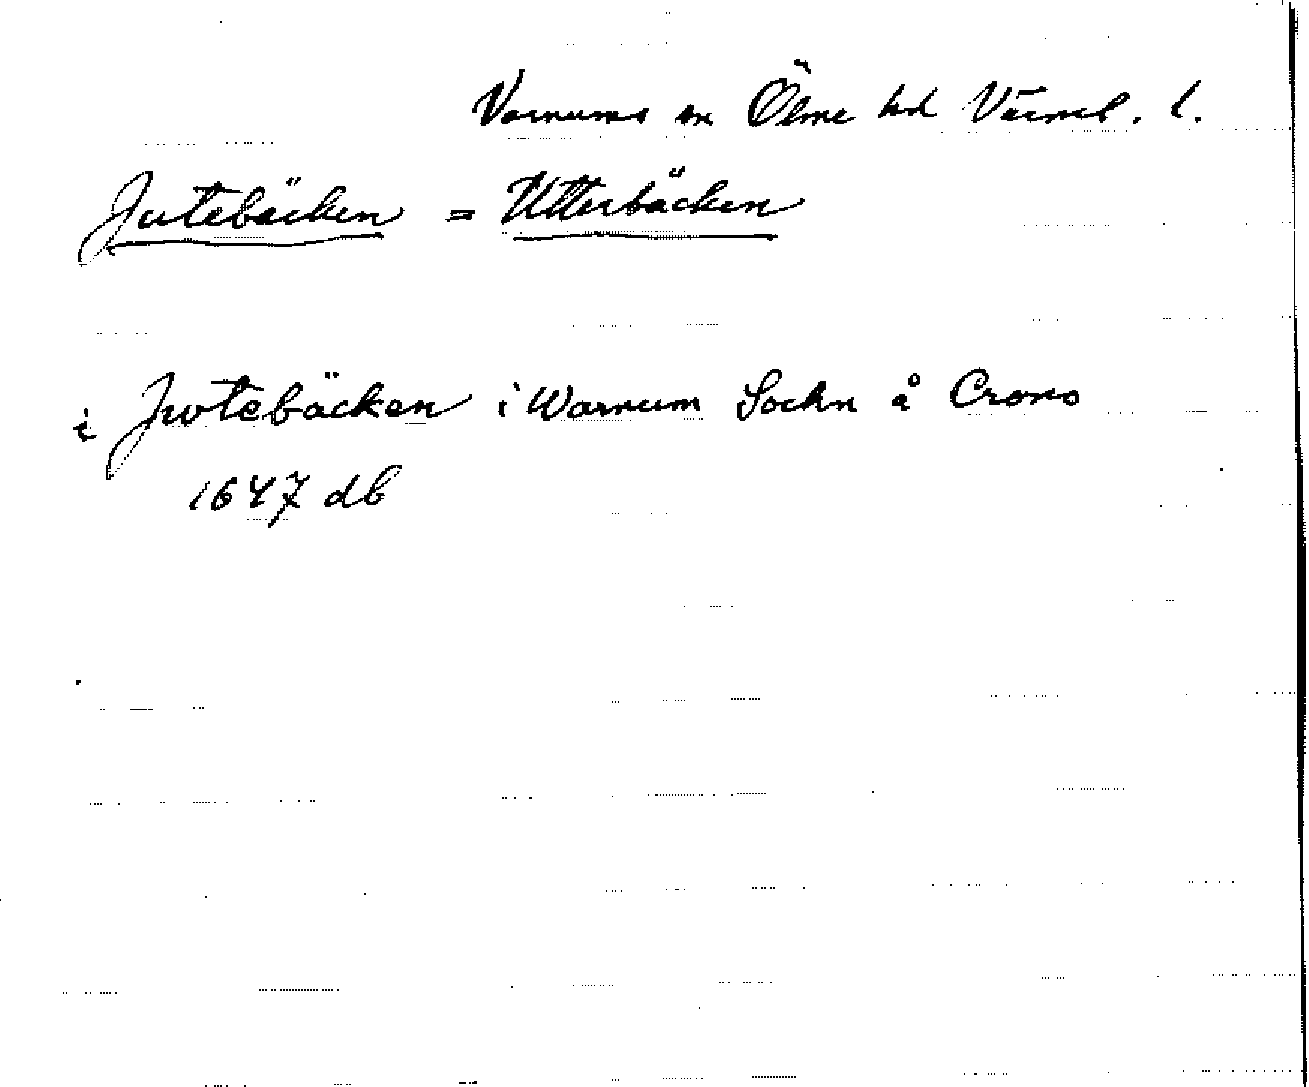 Varnums sn Ölme hd Värml. l.
Jutebäcken = Utterbäcken
i Jwtebäcken i Warnum Sochn å Crono
1647 db